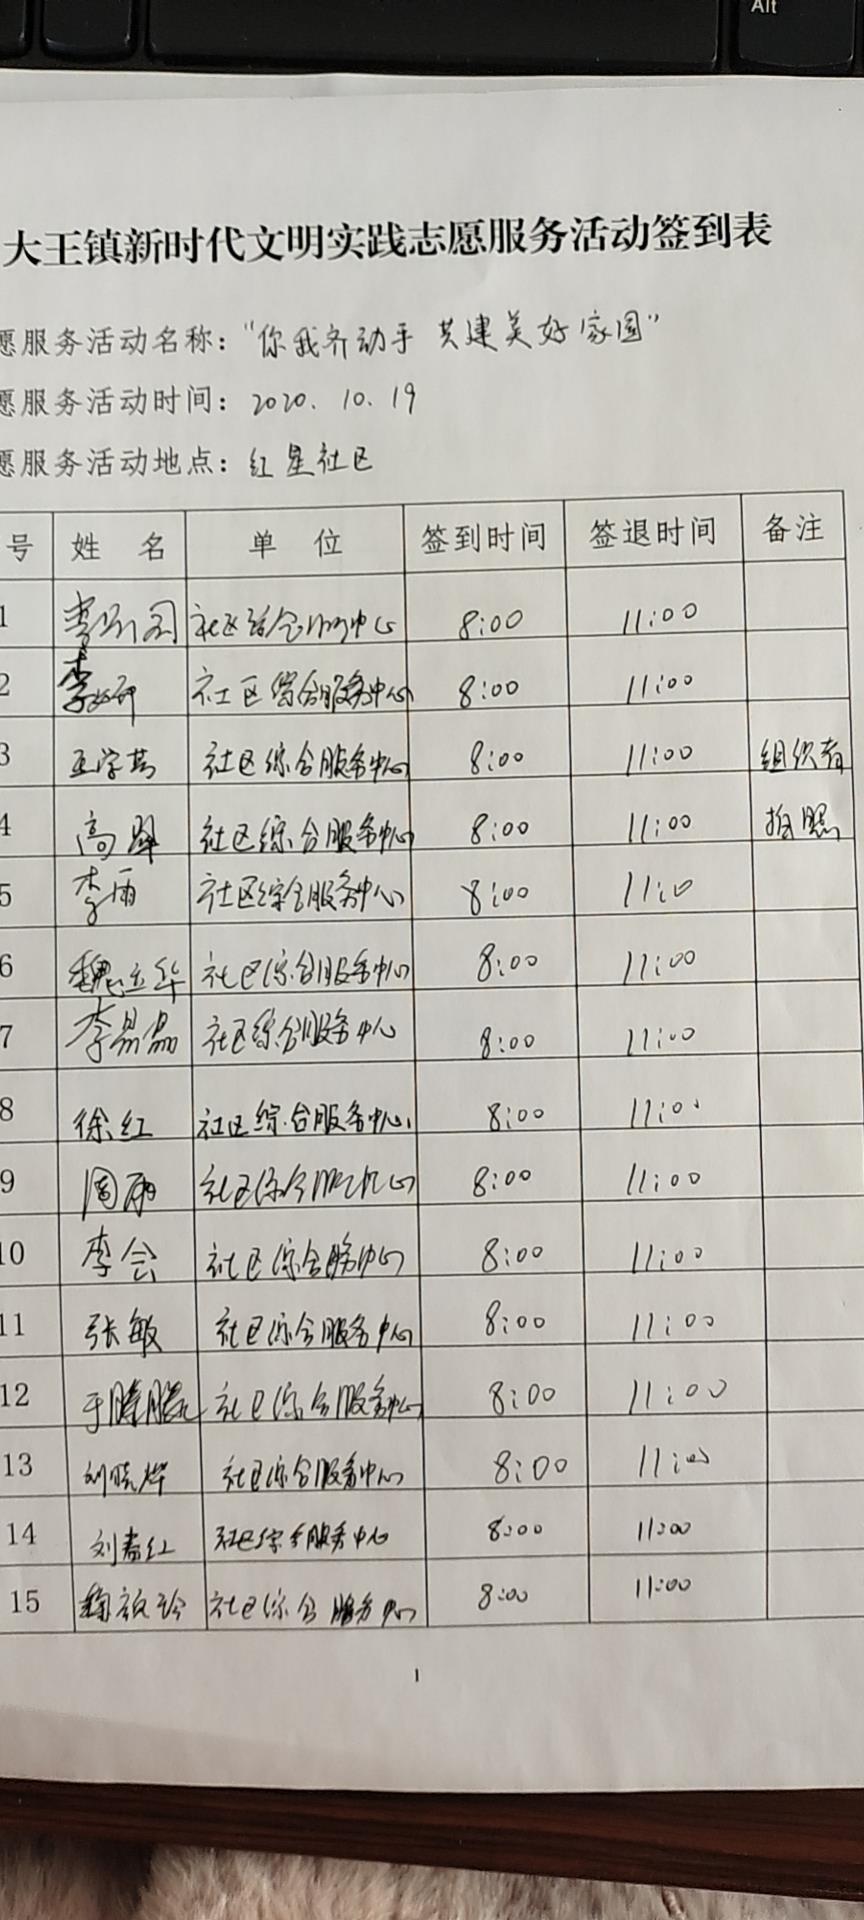 Alt
大王镇新时代文明实践志愿服务活动签到表
愿服务活动名称："你我齐动手 共建美好家园"
愿服务活动时间：2020.10.19
愿服务活动地点：红星社区
号 姓 名 单 位 签到时间 签退时间 备注
1 李 社区综合服务中心 8:00 11:00
2 李 社区综合服务中心 8:00 11:00
3 社区综合服务中心 8:00 11:00 组织者
4 高翠 社区综合服务中心 8:00 11:00 拍照
5 李雨 社区综合服务中心 8:00 11:00
6 魏立华 社区综合服务中心 8:00 11:00
7 李 社区综合服务中心 8:00 11:00
8 徐红 社区综合服务中心 8:00 11:00
9 周丽 社区综合服务中心 8:00 11:00
10 李会 社区综合服务中心 8:00 11:00
11 张敏 社区综合服务中心 8:00 11:00
12 于腾腾 社区综合服务中心 8:00 11:00
13 刘晓烨 社区综合服务中心 8:00 11:00
14 刘春红 社区综合服务中心 8:00 11:00
15 社区综合服务中心 8:00 11:00
1